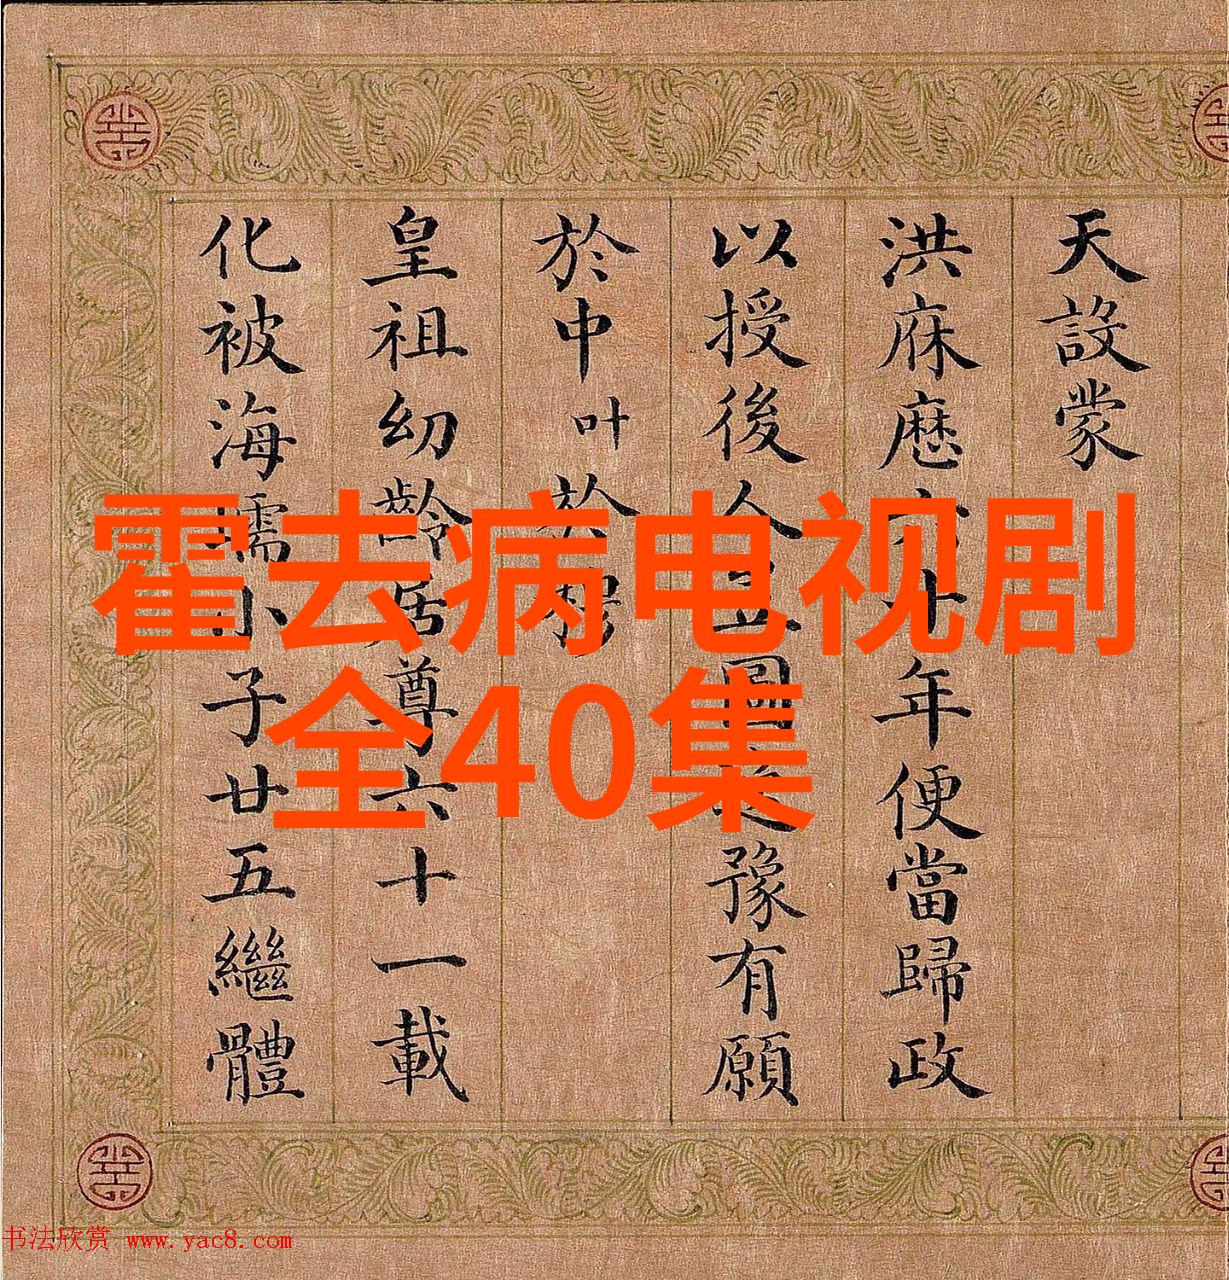 霍去病电视剧
全40集
天設蒙
洪庥歷六十年便當歸政
以授後人立圖之豫有願
於中叶於穆
皇祖幼齡居尊六十一載
化被海壖小子廿五繼體
书法欣赏 www.yac8.com